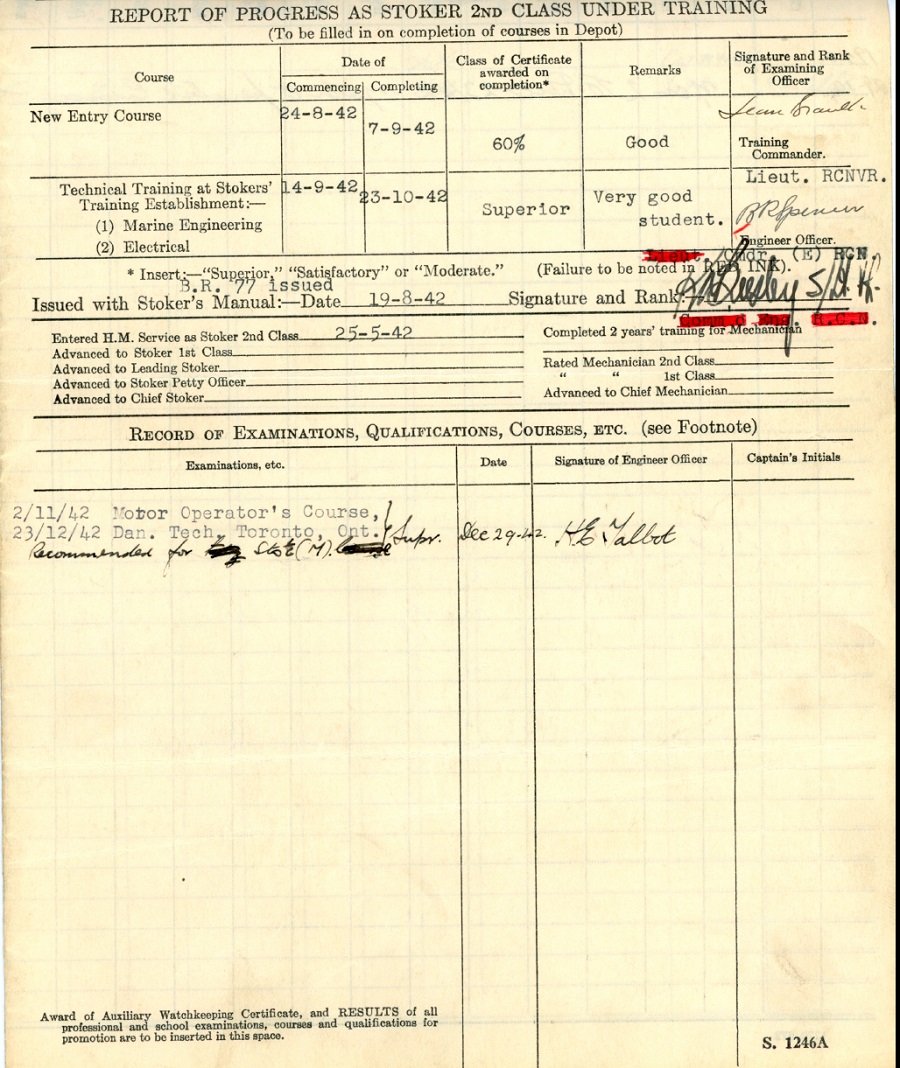 REPORT OF PROGRESS AS STOKER 2ND CLASS UNDER TRAINING
(To be filled in on completion of courses in Depot)
Course
Date of
Commencing Completing
Class of Certificate awarded on completion*
Remarks
Signature and Rank of Examining Officer
New Entry Course
24-8-42
7-9-42
60%
Good
Training Commander.
Lieut. RCNVR.
Technical Training at Stokers' Training Establishment:—
(1) Marine Engineering
(2) Electrical
14-9-42
23-10-42
Superior
Very good student.
B R Spencer
Engineer Officer.
Lieut. Cmdr. (E) RCN.
* Insert:—"Superior," "Satisfactory" or "Moderate."
(Failure to be noted in RED INK).
B.R. 77 issued
Issued with Stoker's Manual:—Date 19-8-42 Signature and Rank:
R.C.N.
Entered H.M. Service as Stoker 2nd Class 25-5-42
Advanced to Stoker 1st Class
Advanced to Leading Stoker
Advanced to Stoker Petty Officer
Advanced to Chief Stoker
Completed 2 years' training for Mechanician
Rated Mechanician 2nd Class
" " 1st Class
Advanced to Chief Mechanician
RECORD OF EXAMINATIONS, QUALIFICATIONS, COURSES, ETC. (see Footnote)
Examinations, etc.
Date
Signature of Engineer Officer
Captain's Initials
2/11/42 Motor Operator's Course,
23/12/42 Dan. Tech, Toronto, Ont. } Supr. Dec 29-42. H E Talbot
Recommended for Sto (M)
Award of Auxiliary Watchkeeping Certificate, and RESULTS of all
professional and school examinations, courses and qualifications for
promotion are to be inserted in this space.
S. 1246A